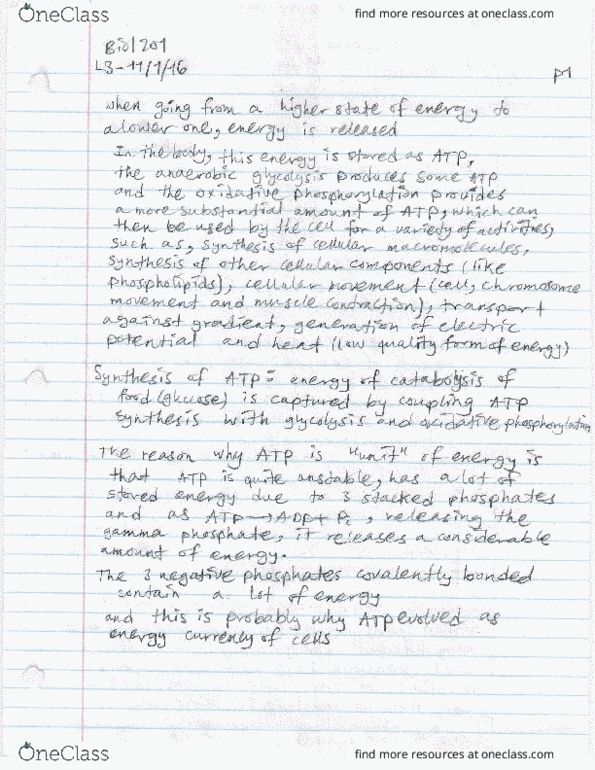 OneClass
find more resources at oneclass.com
Biol 201
L3-11/1/16
p1
when going from a higher state of energy to
a lower one, energy is released
In the body, this energy is stored as ATP,
the anaerobic glycolysis produces some ATP
and the oxidative phosphorylation provides
a more substantial amount of ATP, which can
then be used by the cell for a variety of activities,
such as, synthesis of cellular macromolecules,
synthesis of other cellular components (like
phospholipids), cellular movement (cell, chromosome
movement and muscle contraction), transport
against gradient, generation of electric
potential and heat (low quality form of energy)
Synthesis of ATP: energy of catabolysis of
food (glucose) is captured by coupling ATP
synthesis with glycolysis and oxidative phosphorylation
The reason why ATP is "unit" of energy is
that ATP is quite unstable, has a lot of
stored energy due to 3 stacked phosphates
and as ATP → ADP + Pi, releasing the
gamma phosphate, it releases a considerable
amount of energy.
The 3 negative phosphates covalently bonded
contain a lot of energy
and this is probably why ATP evolved as
energy currency of cells
OneClass
find more resources at oneclass.com